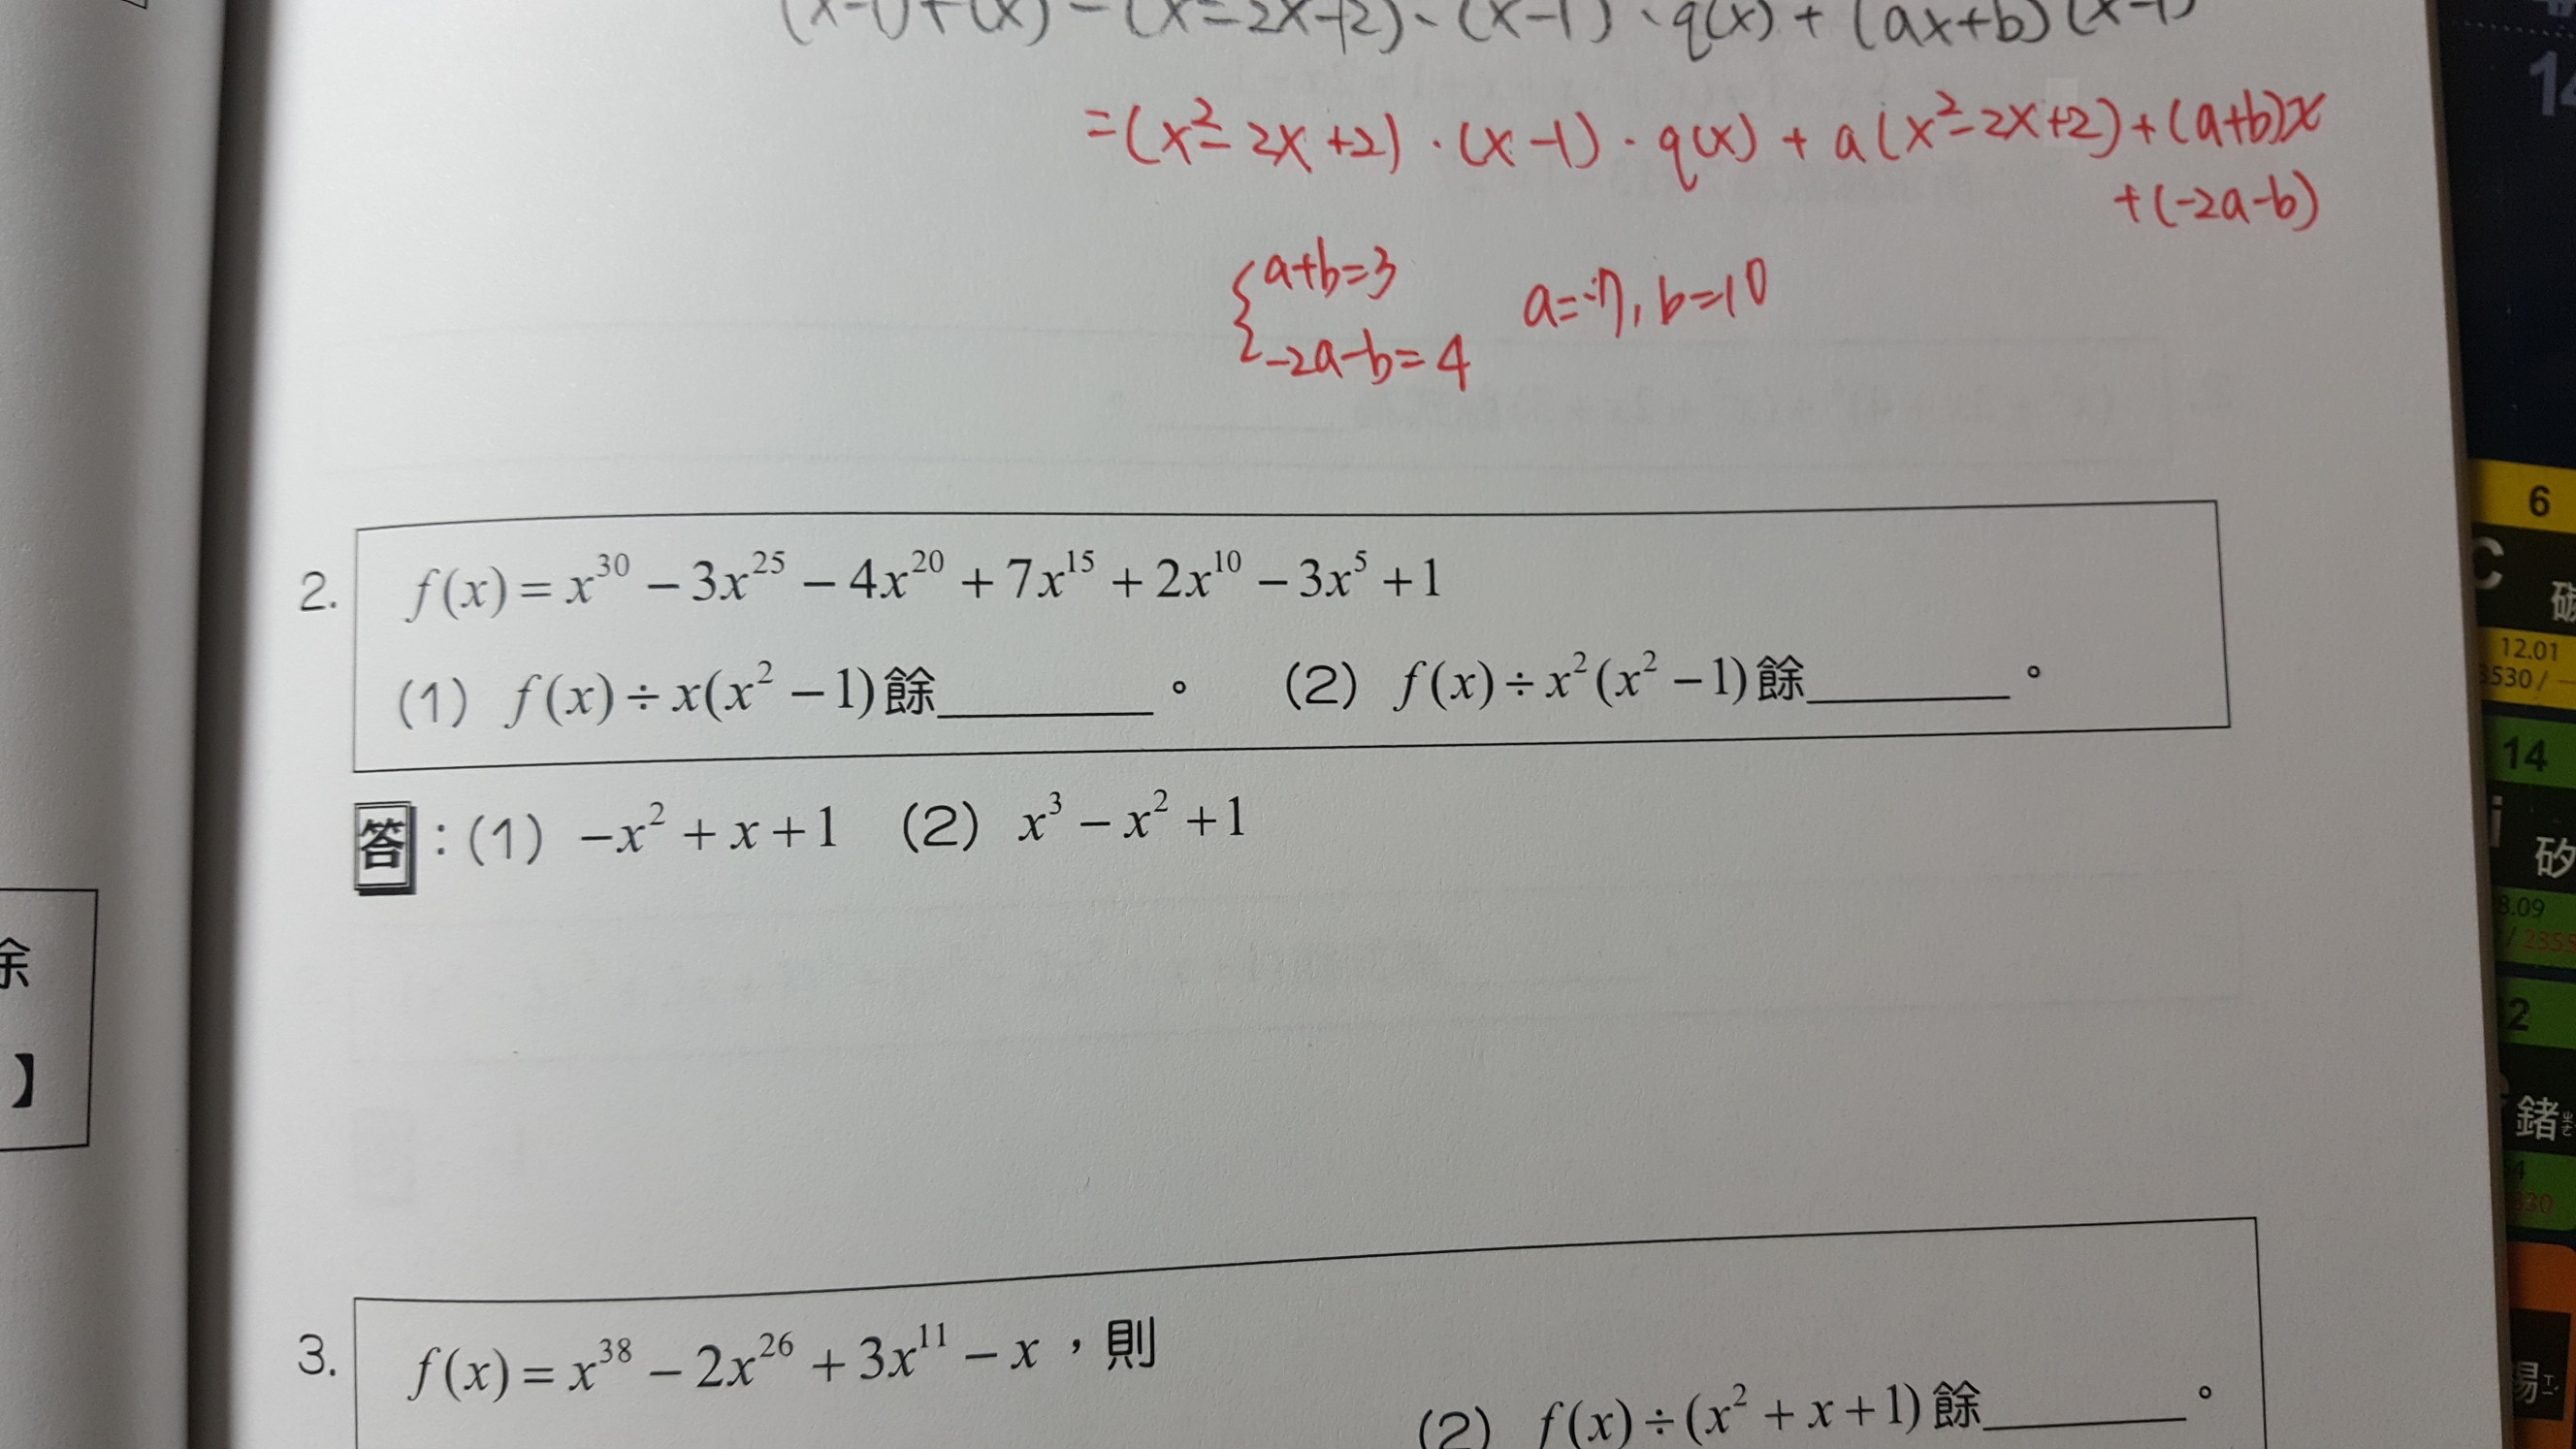 (x-1)f(x) = (x²-2x+2)·(x-1)·q(x) + (ax+b)(x-1)
=(x²-2x+2)·(x-1)·q(x)+a(x²-2x+2)+(a+b)x
+(-2a-b)
{a+b=3
-2a-b=4
a=-7, b=10
2. f(x)=x³⁰-3x²⁵-4x²⁰+7x¹⁵+2x¹⁰-3x⁵+1
(1) f(x)÷x(x²-1)餘________。 (2) f(x)÷x²(x²-1)餘________。
答:(1) -x²+x+1 (2) x³-x²+1
3. f(x)=x³⁸-2x²⁶+3x¹¹-x,則
(2) f(x)÷(x²+x+1)餘________。
余
】
14
6
C
12.01
14
矽
鍺